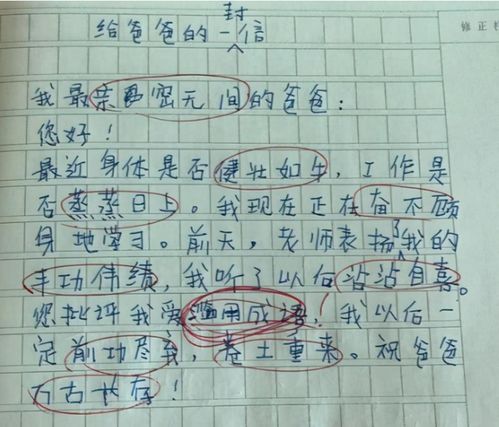 给爸爸的一封信
修正栏
我最亲密无间的爸爸：
您好！
最近身体是否健壮如牛，工作是
否蒸蒸日上。我现在正在奋不顾
身地学习。前天，老师表扬了我的
丰功伟绩，我听了以后沾沾自喜。
您批评我爱滥用成语！我以后一
定前功尽弃，卷土重来。祝爸爸
万古长存！